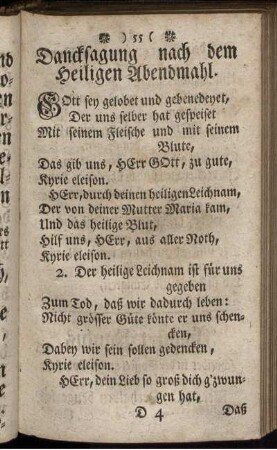 ) 55 (
Dancksagung nach dem
Heiligen Abendmahl.
GOtt sey gelobet und gebenedeyet,
Der uns selber hat gespeiset
Mit seinem Fleische und mit seinem
Blute,
Das gib uns, HErr GOtt, zu gute,
Kyrie eleison.
HErr, durch deinen heiligen Leichnam,
Der von deiner Mutter Maria kam,
Und das heilige Blut,
Hilf uns, HErr, aus aller Noth,
Kyrie eleison.
2. Der heilige Leichnam ist für uns
gegeben
Zum Tod, daß wir dadurch leben:
Nicht grösser Güte könte er uns schen-
cken,
Dabey wir sein sollen gedencken,
Kyrie eleison.
HErr, dein Lieb so groß dich g'zwun-
gen hat,
D 4 Daß